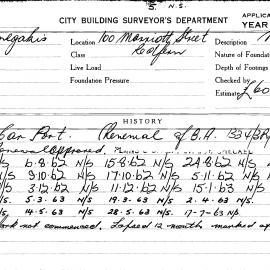 5. N.S.
CITY BUILDING SURVEYOR'S DEPARTMENT
APPLICA
YEAR
Location 100 Marriott Street
Class Redfern
Live Load
Foundation Pressure
Nature of Foundat
Depth of Footings
Checked by
Estimate £60
HISTORY
Car Port. Renewal of B.A.
approved.
6.8.62 N/S 15.8.62 N/S 24.8.62 N/S
8.10.62 N/S 17.10.62 N/S 5.11.62 N/S
3.12.62 N/S 11.12.62 N/S 15.1.63 N/S
5.3.63 N/S 19.3.63 N/S 2.4.63 N/S.
14.5.63 N/S 28.5.63 N/S 17-7-63 N/S
Work not commenced. Lapsed 12 months marked up